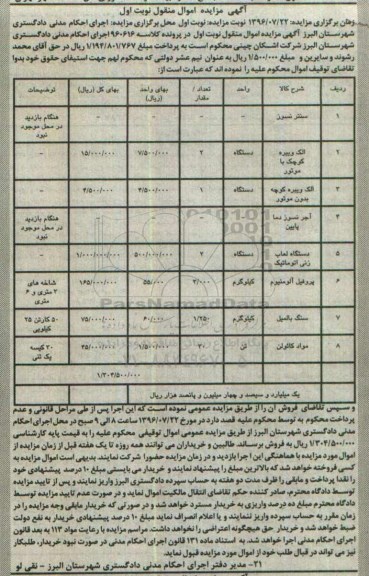 آگهی مزایده اموال منقول نوبت اول
زمان برگزاری مزایده: ۱۳۹۶/۰۷/۲۲ نوبت مزایده: نوبت اول محل برگزاری مزایده: اجرای احکام مدنی دادگستری
شهرستان البرز آگهی مزایده اموال منقول نوبت اول در پرونده کلاسه ۹۶۰۶۱۶ اجرای احکام مدنی دادگستری
شهرستان البرز شرکت اشکان چینی محکوم است به پرداخت مبلغ ۱/۱۹۴/۸۰۱/۷۶۷ ریال در حق آقای محمد
رشوند و سایرین و مبلغ ۱/۵۰۰/۰۰۰ ریال به عنوان نیم عشر دولتی که محکوم لهم جهت استیفای حقوق خود بدوا
تقاضای توقیف اموال محکوم علیه را نموده اند که عبارت است از:
ردیف شرح کالا واحد تعداد / مقدار بهای واحد (ریال) بهای کل (ریال) توضیحات
۱ سنتز نسوز - - - - هنگام بازدید در محل موجود نبود
۲ الک ویبره کوچک با موتور دستگاه ۲ ۷/۵۰۰/۰۰۰ ۱۵/۰۰۰/۰۰۰ -
۳ الک ویبره کوچه بدون موتور دستگاه ۱ ۴/۵۰۰/۰۰۰ ۴/۵۰۰/۰۰۰ -
۴ آجر نسوز دما پایین - - - - هنگام بازدید در محل موجود نبود
۵ دستگاه لعاب زنی اتوماتیک دستگاه ۲ ۵۰۰/۰۰۰/۰۰۰ ۱/۰۰۰/۰۰۰/۰۰۰ -
۶ پروفیل آلومنیوم کیلوگرم ۳/۰۰۰ ۵۵/۰۰۰ ۱۶۵/۰۰۰/۰۰۰ شاخه های ۳ متری و ۶ متری
۷ سنگ بالمیل کیلوگرم ۱/۲۵۰ ۶۰/۰۰۰ ۷۵/۰۰۰/۰۰۰ ۵۰ کارتن ۲۵ کیلویی
۸ مواد کائولن تن ۳۰ ۱/۵۰۰/۰۰۰ ۴۵/۰۰۰/۰۰۰ ۳۰ کیسه یک تنی
۱/۳۰۴/۵۰۰/۰۰۰
یک میلیارد و سیصد و چهار میلیون و پانصد هزار ریال
و سپس تقاضای فروش آن را از طریق مزایده عمومی نموده است که این اجرا پس از طی مراحل قانونی و عدم
پرداخت محکوم به توسط محکوم علیه قصد دارد در مورخ ۱۳۹۶/۰۷/۲۲ ساعت ۸ الی ۹ صبح در محل اجرای احکام
مدنی دادگستری شهرستان البرز از طریق مزایده عمومی اموال توقیفی محکوم علیه را به قیمت پایه کارشناسی
۱/۳۰۴/۵۰۰/۰۰۰ ریال به فروش برساند. طالبین و خریداران می توانند همه روزه تا یک هفته قبل از زمان مزایده از
اموال مورد مزایده با هماهنگی این اجرا بازدید و در زمان مزایده حضورا شرکت نمایند. بدیهی است اموال مزایده به
کسی فروخته خواهد شد که بالاترین مبلغ را پیشنهاد نمایند و خریدار می بایستی مبلغ ۱۰ درصد پیشنهادی خود
را نقدا پرداخت و مابقی را ظرف مدت دو هفته به حساب سپرده دادگستری البرز واریز نمایند و پس از تایید مزایده
توسط دادگاه محترم، صادر کننده حکم تقاضای انتقال مالکیت اموال نماید و در صورت عدم تایید مزایده توسط
دادگاه محترم مبلغ ده درصد واریزی به خریدار مسترد خواهد شد و در صورتی که خریدار مابقی وجه مزایده را در
زمان مقرر به حساب سپرده واریز ننمایند و یا اعلام انصراف نماید مبلغ ۱۰ درصد پیشنهادی خریدار به نفع دولت
ضبط خواهد شد و خریدار حق هیچگونه اعتراضی را نخواهد داشت. مراسم مزایده با رعایت مواد ۱۱۳ به بعد قانون
اجرای احکام مدنی اجرا خواهد شد. به استناد ماده ۱۳۱ قانون اجرای احکام مدنی در صورت نبود خریدار، طلبکار
نیز می تواند در قبال طلب خود از اموال مورد مزایده قبول نماید.
۲۱- مدیر دفتر اجرای احکام مدنی دادگستری شهرستان البرز - نقی لو
ParsNamadData